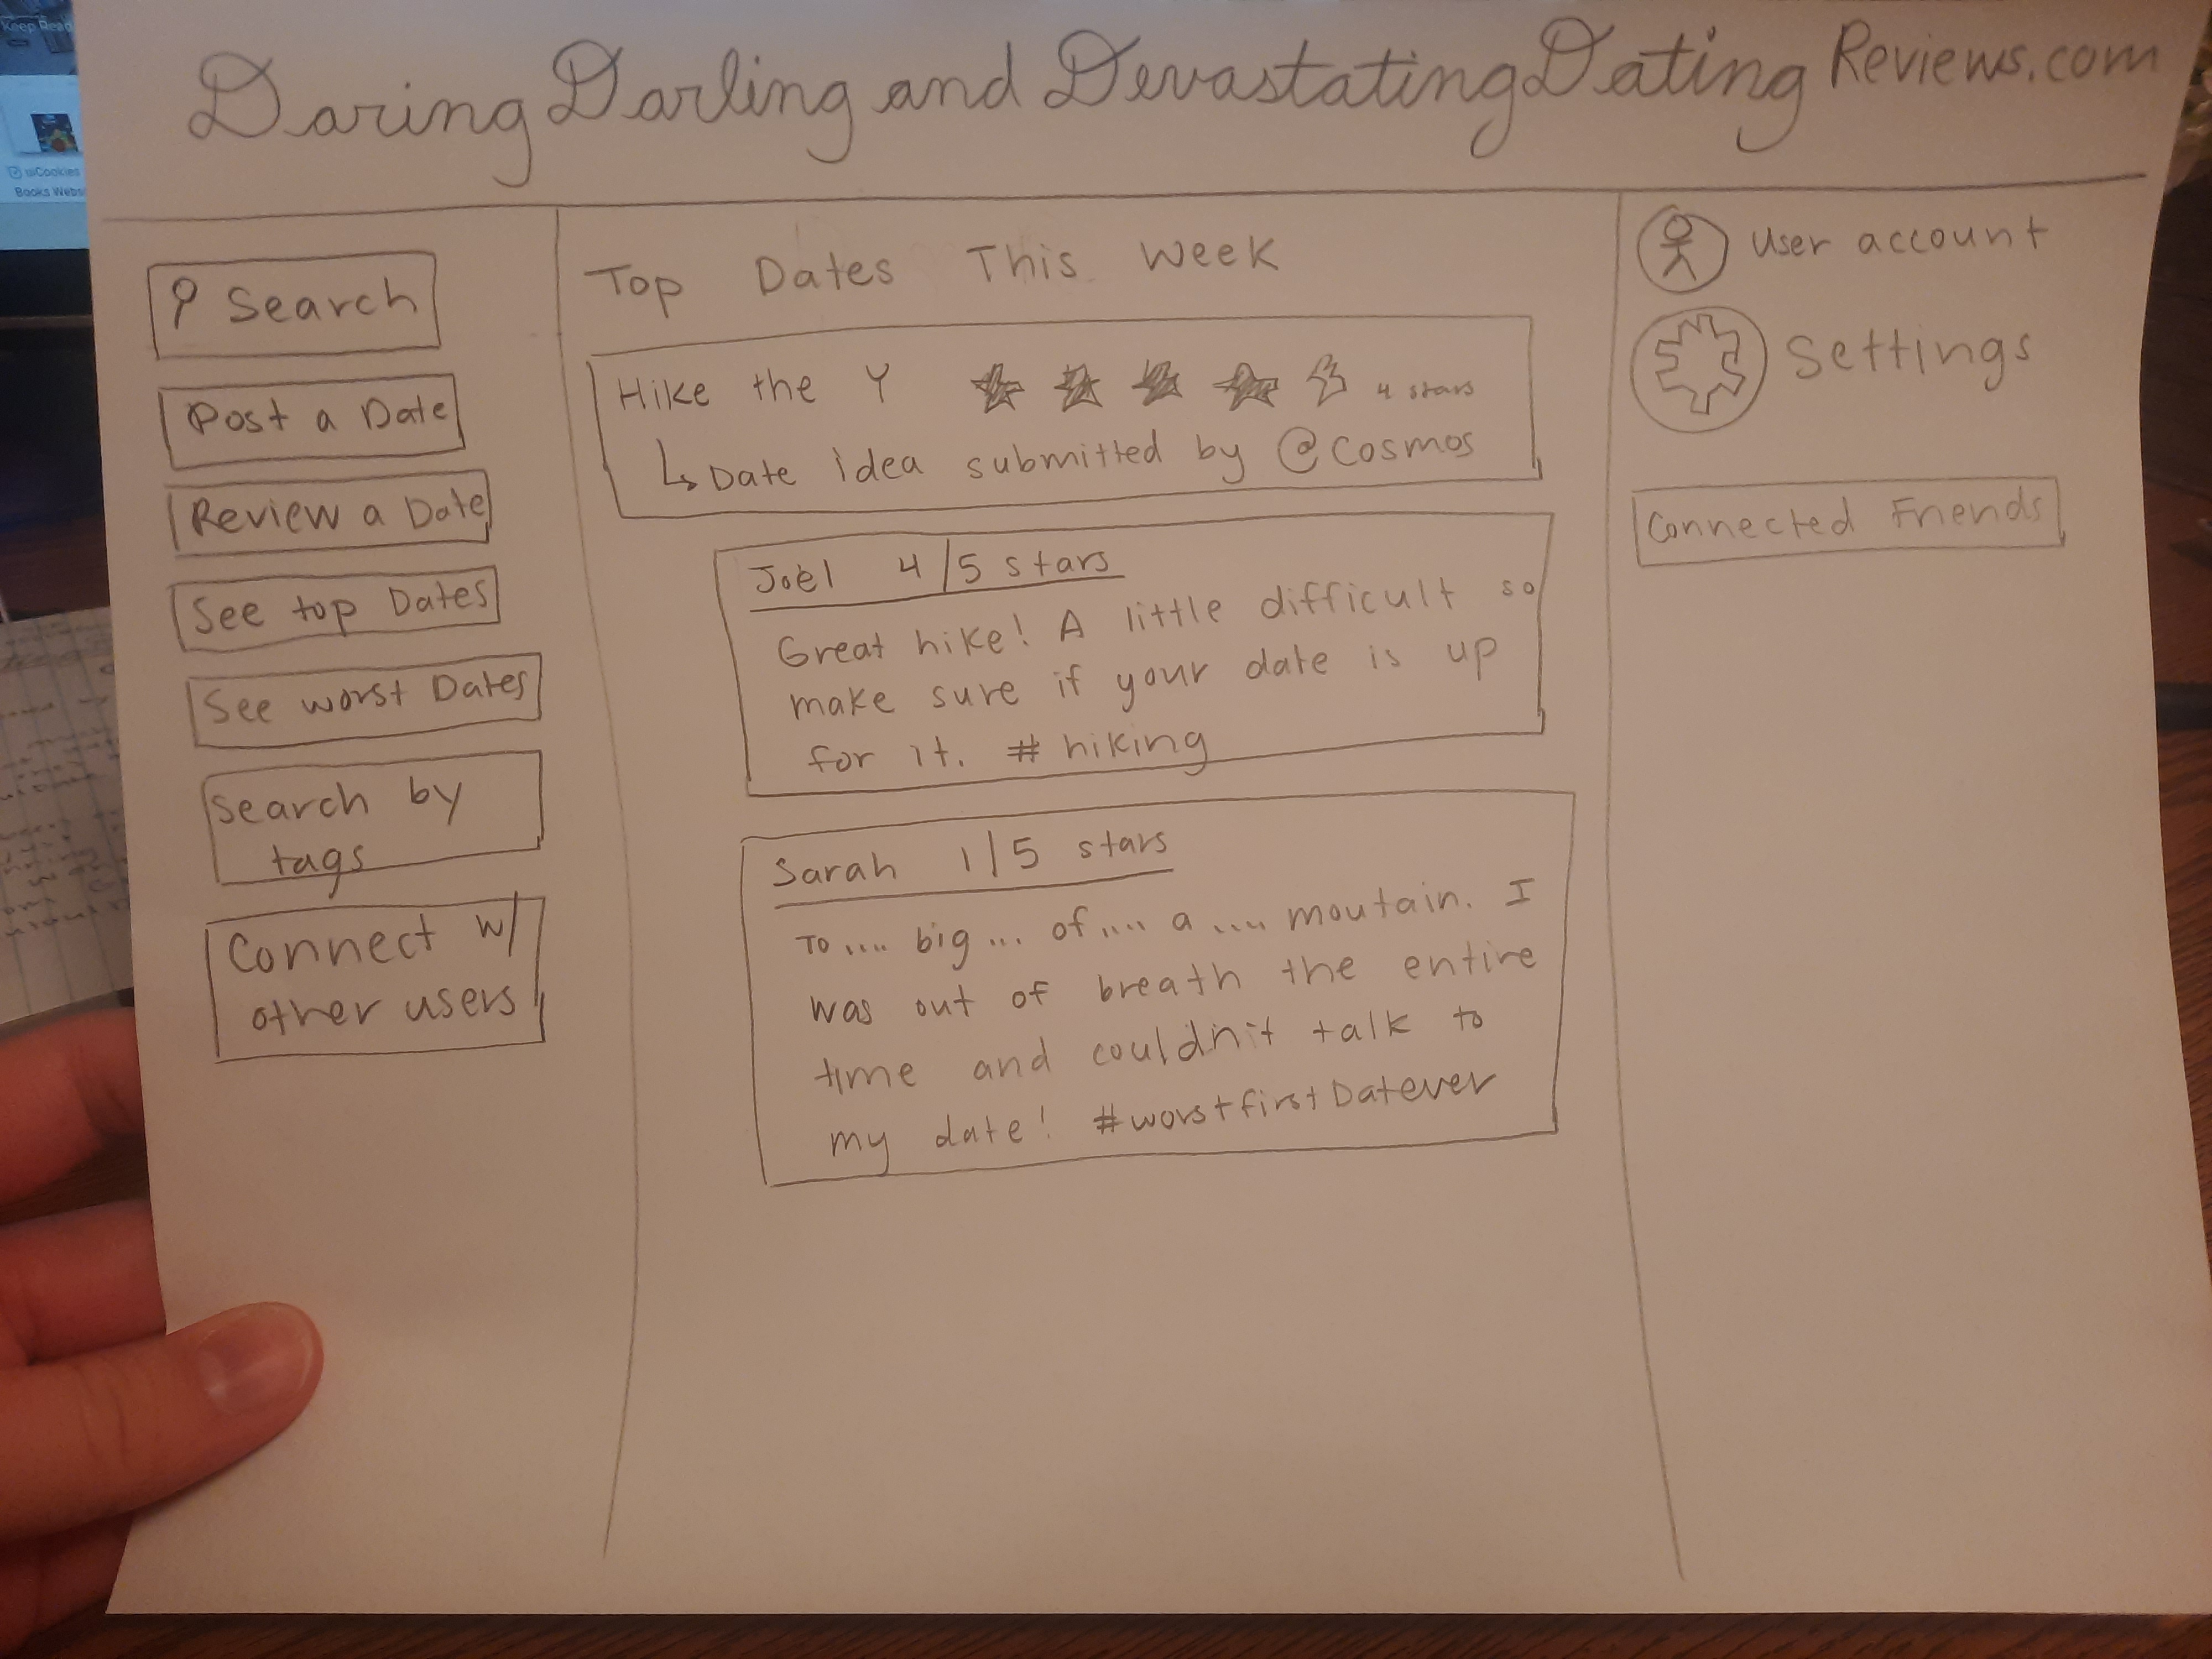 Keep Read
uiCookies
Books Webs
Daring Darling and Devastating Dating Reviews.com
Search
Post a Date
Review a Date
See top Dates
See worst Dates
Search by
tags
Connect w/
other users
Top Dates This Week
Hike the Y 4 stars
Date idea submitted by @cosmos
Joel 4/5 stars
Great hike! A little difficult so
make sure if your date is up
for it. # hiking
Sarah 1/5 stars
To .... big ... of .... a .... moutain. I
was out of breath the entire
time and couldn't talk to
my date! #worstfirstDatever
User account
Settings
Connected Friends